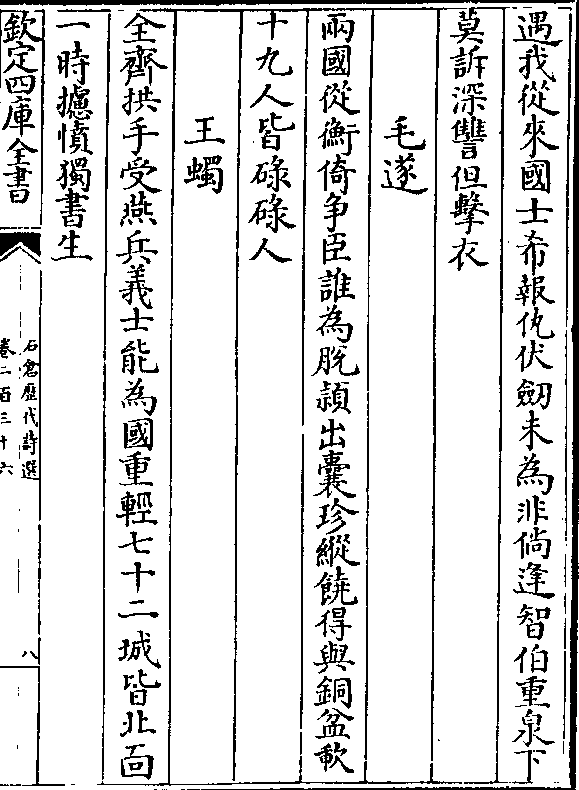 遇我從來國士希報仇伏劒未為非倘逢智伯重泉下
莫訴深讐但擊衣
毛遂
兩國從衡倚爭臣誰為脫潁出囊珍縱饒得與銅盆歃
十九人皆碌碌人
王蠋
全齊拱手受燕兵義士能為國重輕七十二城皆北面
一時攄憤獨書生
欽定四庫全書
石倉歷代詩選
卷二百三十六
八